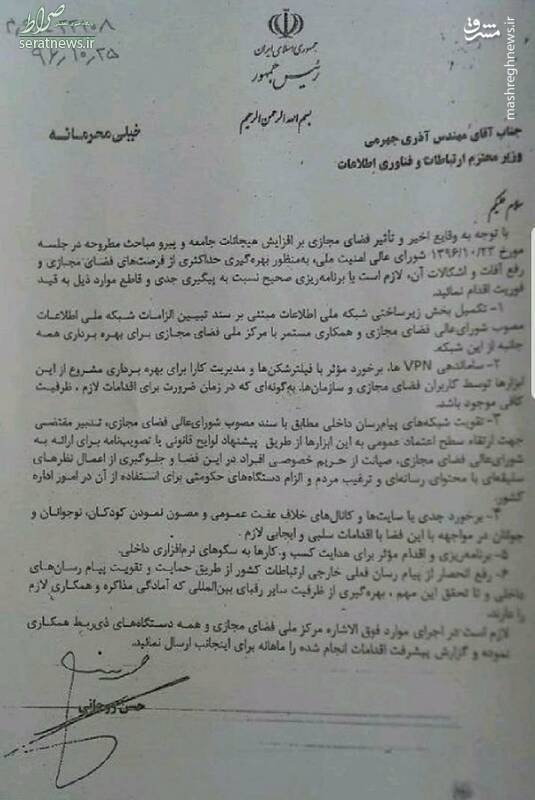 صراط
seratnews.ir
مشرق
mashreghnews.ir
۹۶/۱۰/۲۵
جمهوری اسلامی ایران
رئیس جمهور
بسم الله الرحمن الرحیم
خیلی محرمانه
جناب آقای مهندس آذری جهرمی
وزیر محترم ارتباطات و فناوری اطلاعات
سلام علیکم
با توجه به وقایع اخیر و تأثیر فضای مجازی بر افزایش هیجانات جامعه و پیرو مباحث مطروحه در جلسه
مورخ ۱۳۹۶/۱۰/۲۳ شورای عالی امنیت ملی، به‌منظور بهره‌گیری حداکثری از فرصت‌های فضای مجازی و
رفع آفات و اشکالات آن، لازم است با برنامه‌ریزی صحیح نسبت به پیگیری جدی و قاطع موارد ذیل به قید
فوریت اقدام نمائید.
۱- تکمیل بخش زیرساختی شبکه ملی اطلاعات مبتنی بر سند تبیین الزامات شبکه ملی اطلاعات
مصوب شورای‌عالی فضای مجازی و همکاری مستمر با مرکز ملی فضای مجازی برای بهره برداری همه
جانبه از این شبکه.
۲- ساماندهی VPN ها، برخورد مؤثر با فیلترشکن‌ها و مدیریت کارا برای بهره برداری مشروع از این
ابزارها توسط کاربران فضای مجازی و سازمان‌ها، به‌گونه‌ای که در زمان ضرورت برای اقدامات لازم ، ظرفیت
کافی موجود باشد.
۳- تقویت شبکه‌های پیام‌رسان داخلی مطابق با سند مصوب شورای‌عالی فضای مجازی، تدبیر مقتضی
جهت ارتقاء سطح اعتماد عمومی به این ابزارها از طریق پیشنهاد لوایح قانونی یا تصویب‌نامه برای ارائه به
شورای‌عالی فضای مجازی، صیانت از حریم خصوصی افراد در این فضا و جلوگیری از اعمال نظرهای
سلیقه‌ای با محتوای رسانه‌ای و ترغیب مردم و الزام دستگاه‌های حکومتی برای استفاده از آن در امور اداره
کشور.
۴- برخورد جدی با سایت‌ها و کانال‌های خلاف عفت عمومی و مصون نمودن کودکان، نوجوانان و
جوانان در مواجهه با این فضا با اقدامات سلبی و ایجابی لازم .
۵- برنامه‌ریزی و اقدام مؤثر برای هدایت کسب و کارها به سکوهای نرم‌افزاری داخلی.
۶- رفع انحصار از پیام رسان فعلی خارجی ارتباطات کشور از طریق حمایت و تقویت پیام رسان‌های
داخلی و تا تحقق این مهم ، بهره‌گیری از ظرفیت سایر رقبای بین‌المللی که آمادگی مذاکره و همکاری لازم
را دارند.
لازم است در اجرای موارد فوق الاشاره مرکز ملی فضای مجازی و همه دستگاه‌های ذی‌ربط همکاری
نموده و گزارش پیشرفت اقدامات انجام شده را ماهانه برای اینجانب ارسال نمائید.
حسن روحانی